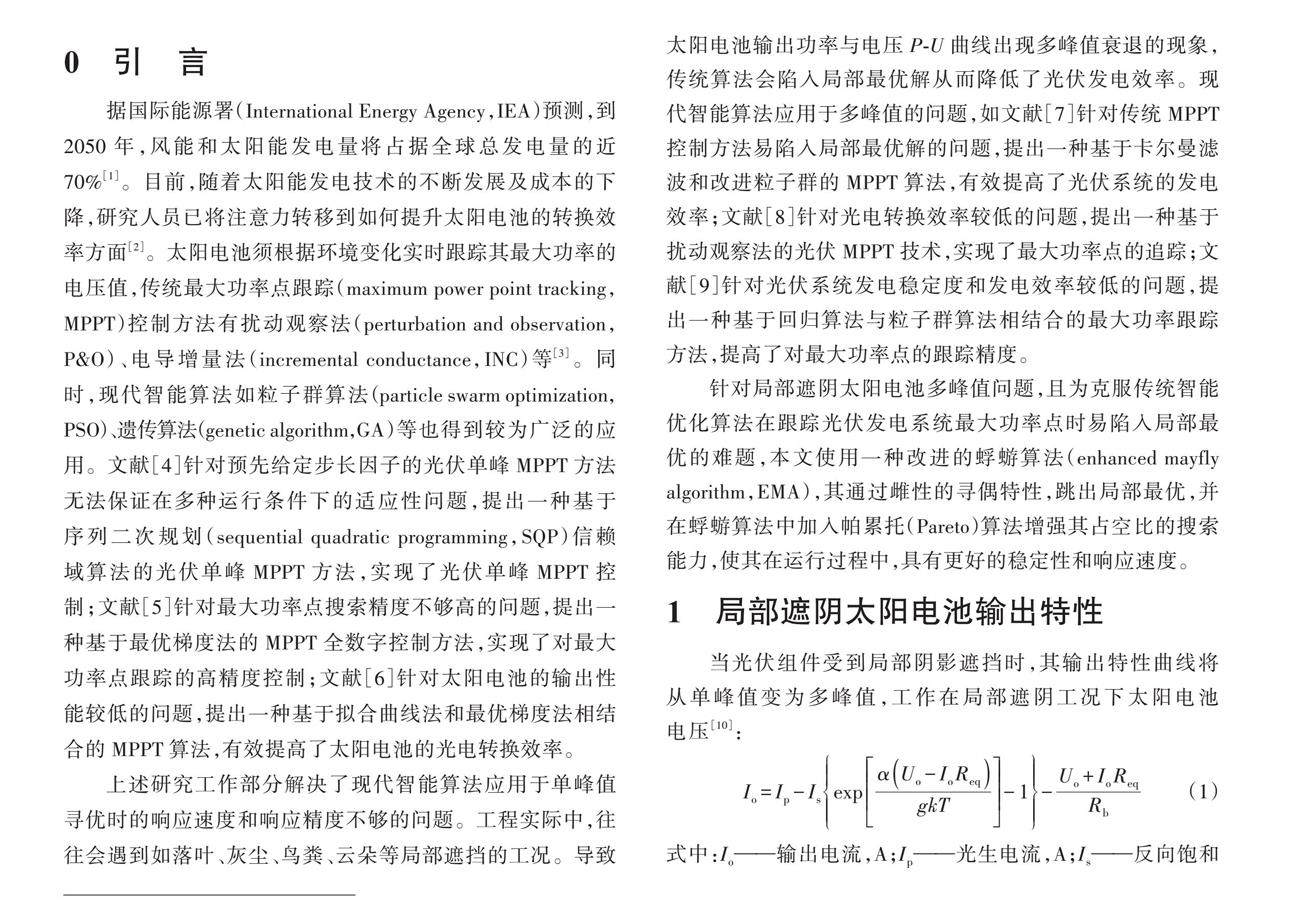 0 引 言
据国际能源署(International Energy Agency,IEA)预测,到
2050 年,风能和太阳能发电量将占据全球总发电量的近
70%[1]。目前,随着太阳能发电技术的不断发展及成本的下
降,研究人员已将注意力转移到如何提升太阳电池的转换效
率方面[2]。太阳电池须根据环境变化实时跟踪其最大功率的
电压值,传统最大功率点跟踪(maximum power point tracking,
MPPT)控制方法有扰动观察法(perturbation and observation,
P&O)、电导增量法(incremental conductance,INC)等[3]。同
时,现代智能算法如粒子群算法(particle swarm optimization,
PSO)、遗传算法(genetic algorithm,GA)等也得到较为广泛的应
用。文献[4]针对预先给定步长因子的光伏单峰 MPPT 方法
无法保证在多种运行条件下的适应性问题,提出一种基于
序列二次规划(sequential quadratic programming,SQP)信赖
域算法的光伏单峰 MPPT 方法,实现了光伏单峰 MPPT 控
制;文献[5]针对最大功率点搜索精度不够高的问题,提出一
种基于最优梯度法的 MPPT 全数字控制方法,实现了对最大
功率点跟踪的高精度控制;文献[6]针对太阳电池的输出性
能较低的问题,提出一种基于拟合曲线法和最优梯度法相结
合的 MPPT 算法,有效提高了太阳电池的光电转换效率。
上述研究工作部分解决了现代智能算法应用于单峰值
寻优时的响应速度和响应精度不够的问题。工程实际中,往
往会遇到如落叶、灰尘、鸟粪、云朵等局部遮挡的工况。导致
太阳电池输出功率与电压 P-U 曲线出现多峰值衰退的现象,
传统算法会陷入局部最优解从而降低了光伏发电效率。现
代智能算法应用于多峰值的问题,如文献[7]针对传统 MPPT
控制方法易陷入局部最优解的问题,提出一种基于卡尔曼滤
波和改进粒子群的 MPPT 算法,有效提高了光伏系统的发电
效率;文献[8]针对光电转换效率较低的问题,提出一种基于
扰动观察法的光伏 MPPT 技术,实现了最大功率点的追踪;文
献[9]针对光伏系统发电稳定度和发电效率较低的问题,提
出一种基于回归算法与粒子群算法相结合的最大功率跟踪
方法,提高了对最大功率点的跟踪精度。
针对局部遮阴太阳电池多峰值问题,且为克服传统智能
优化算法在跟踪光伏发电系统最大功率点时易陷入局部最
优的难题,本文使用一种改进的蜉蝣算法(enhanced mayfly
algorithm,EMA),其通过雌性的寻偶特性,跳出局部最优,并
在蜉蝣算法中加入帕累托(Pareto)算法增强其占空比的搜索
能力,使其在运行过程中,具有更好的稳定性和响应速度。
1 局部遮阴太阳电池输出特性
当光伏组件受到局部阴影遮挡时,其输出特性曲线将
从单峰值变为多峰值,工作在局部遮阴工况下太阳电池
电压[10]:
I_o = I_p − I_s{exp[α(U_o − I_o R_eq)/(gkT)] − 1} − (U_o + I_o R_eq)/R_b (1)
式中:I_o——输出电流,A;I_p——光生电流,A;I_s——反向饱和